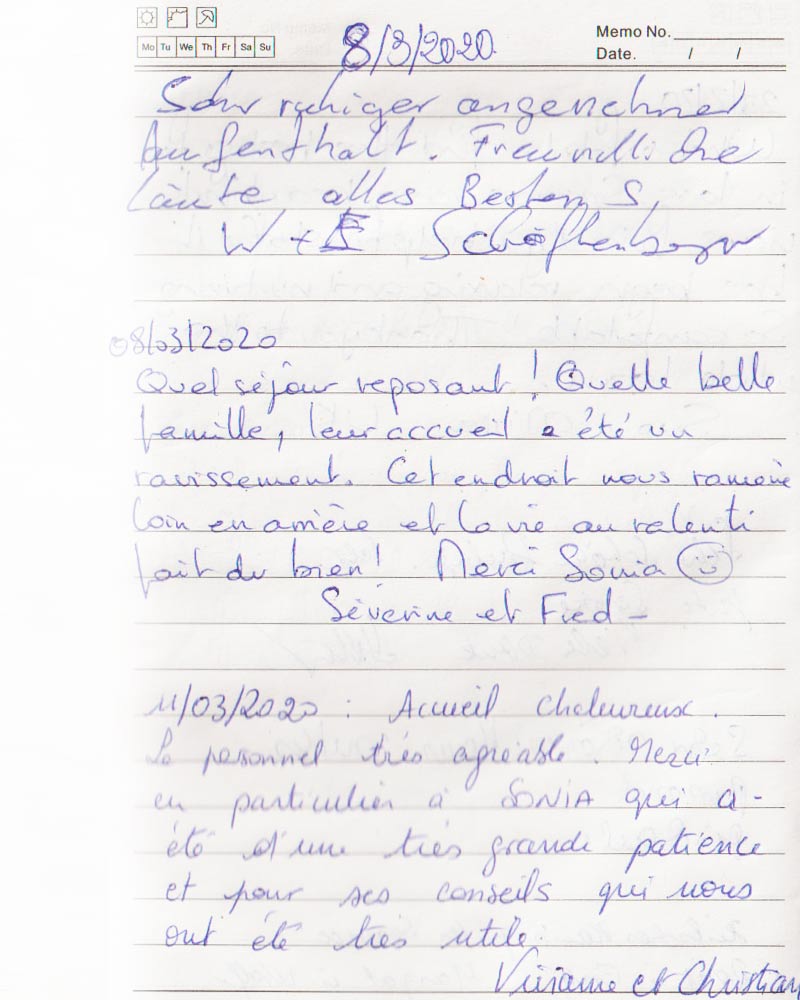 Mo Tu We Th Fr Sa Su
8/3/2020
Memo No.
Date. / /
Sehr ruhiger angenehmer
Aufenthalt. Freundliche
Läute alles Bestens,
W + E
08/03/2020
Quel séjour reposant ! Quelle belle
famille, leur accueil a été un
ravissement. Cet endroit nous ramène
loin en arrière et la vie au ralenti
fait du bien! Merci Sonia
Séverine et Fred -
11/03/2020 : Accueil chaleureux.
Le personnel très agréable. Merci
en particulier à SONIA qui a -
été d'une très grande patience
et pour ses conseils qui nous
ont été très utile.
Viviane et Christian